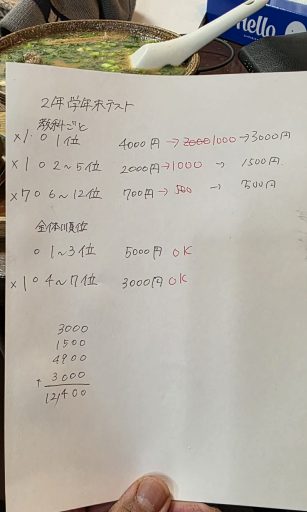 hello
2年学年末テスト
教科ごと
×1 ○ 1位 4000円 → 2000 1000 → 3000円
×1 ○ 2~5位 2000円 → 1000 → 1500円
×7 ○ 6~12位 700円 → 500 → 500円
全体順位
○ 1~3位 5000円 OK
×1 ○ 4~7位 3000円 OK
3000
1500
4900
+ 3000
12,400